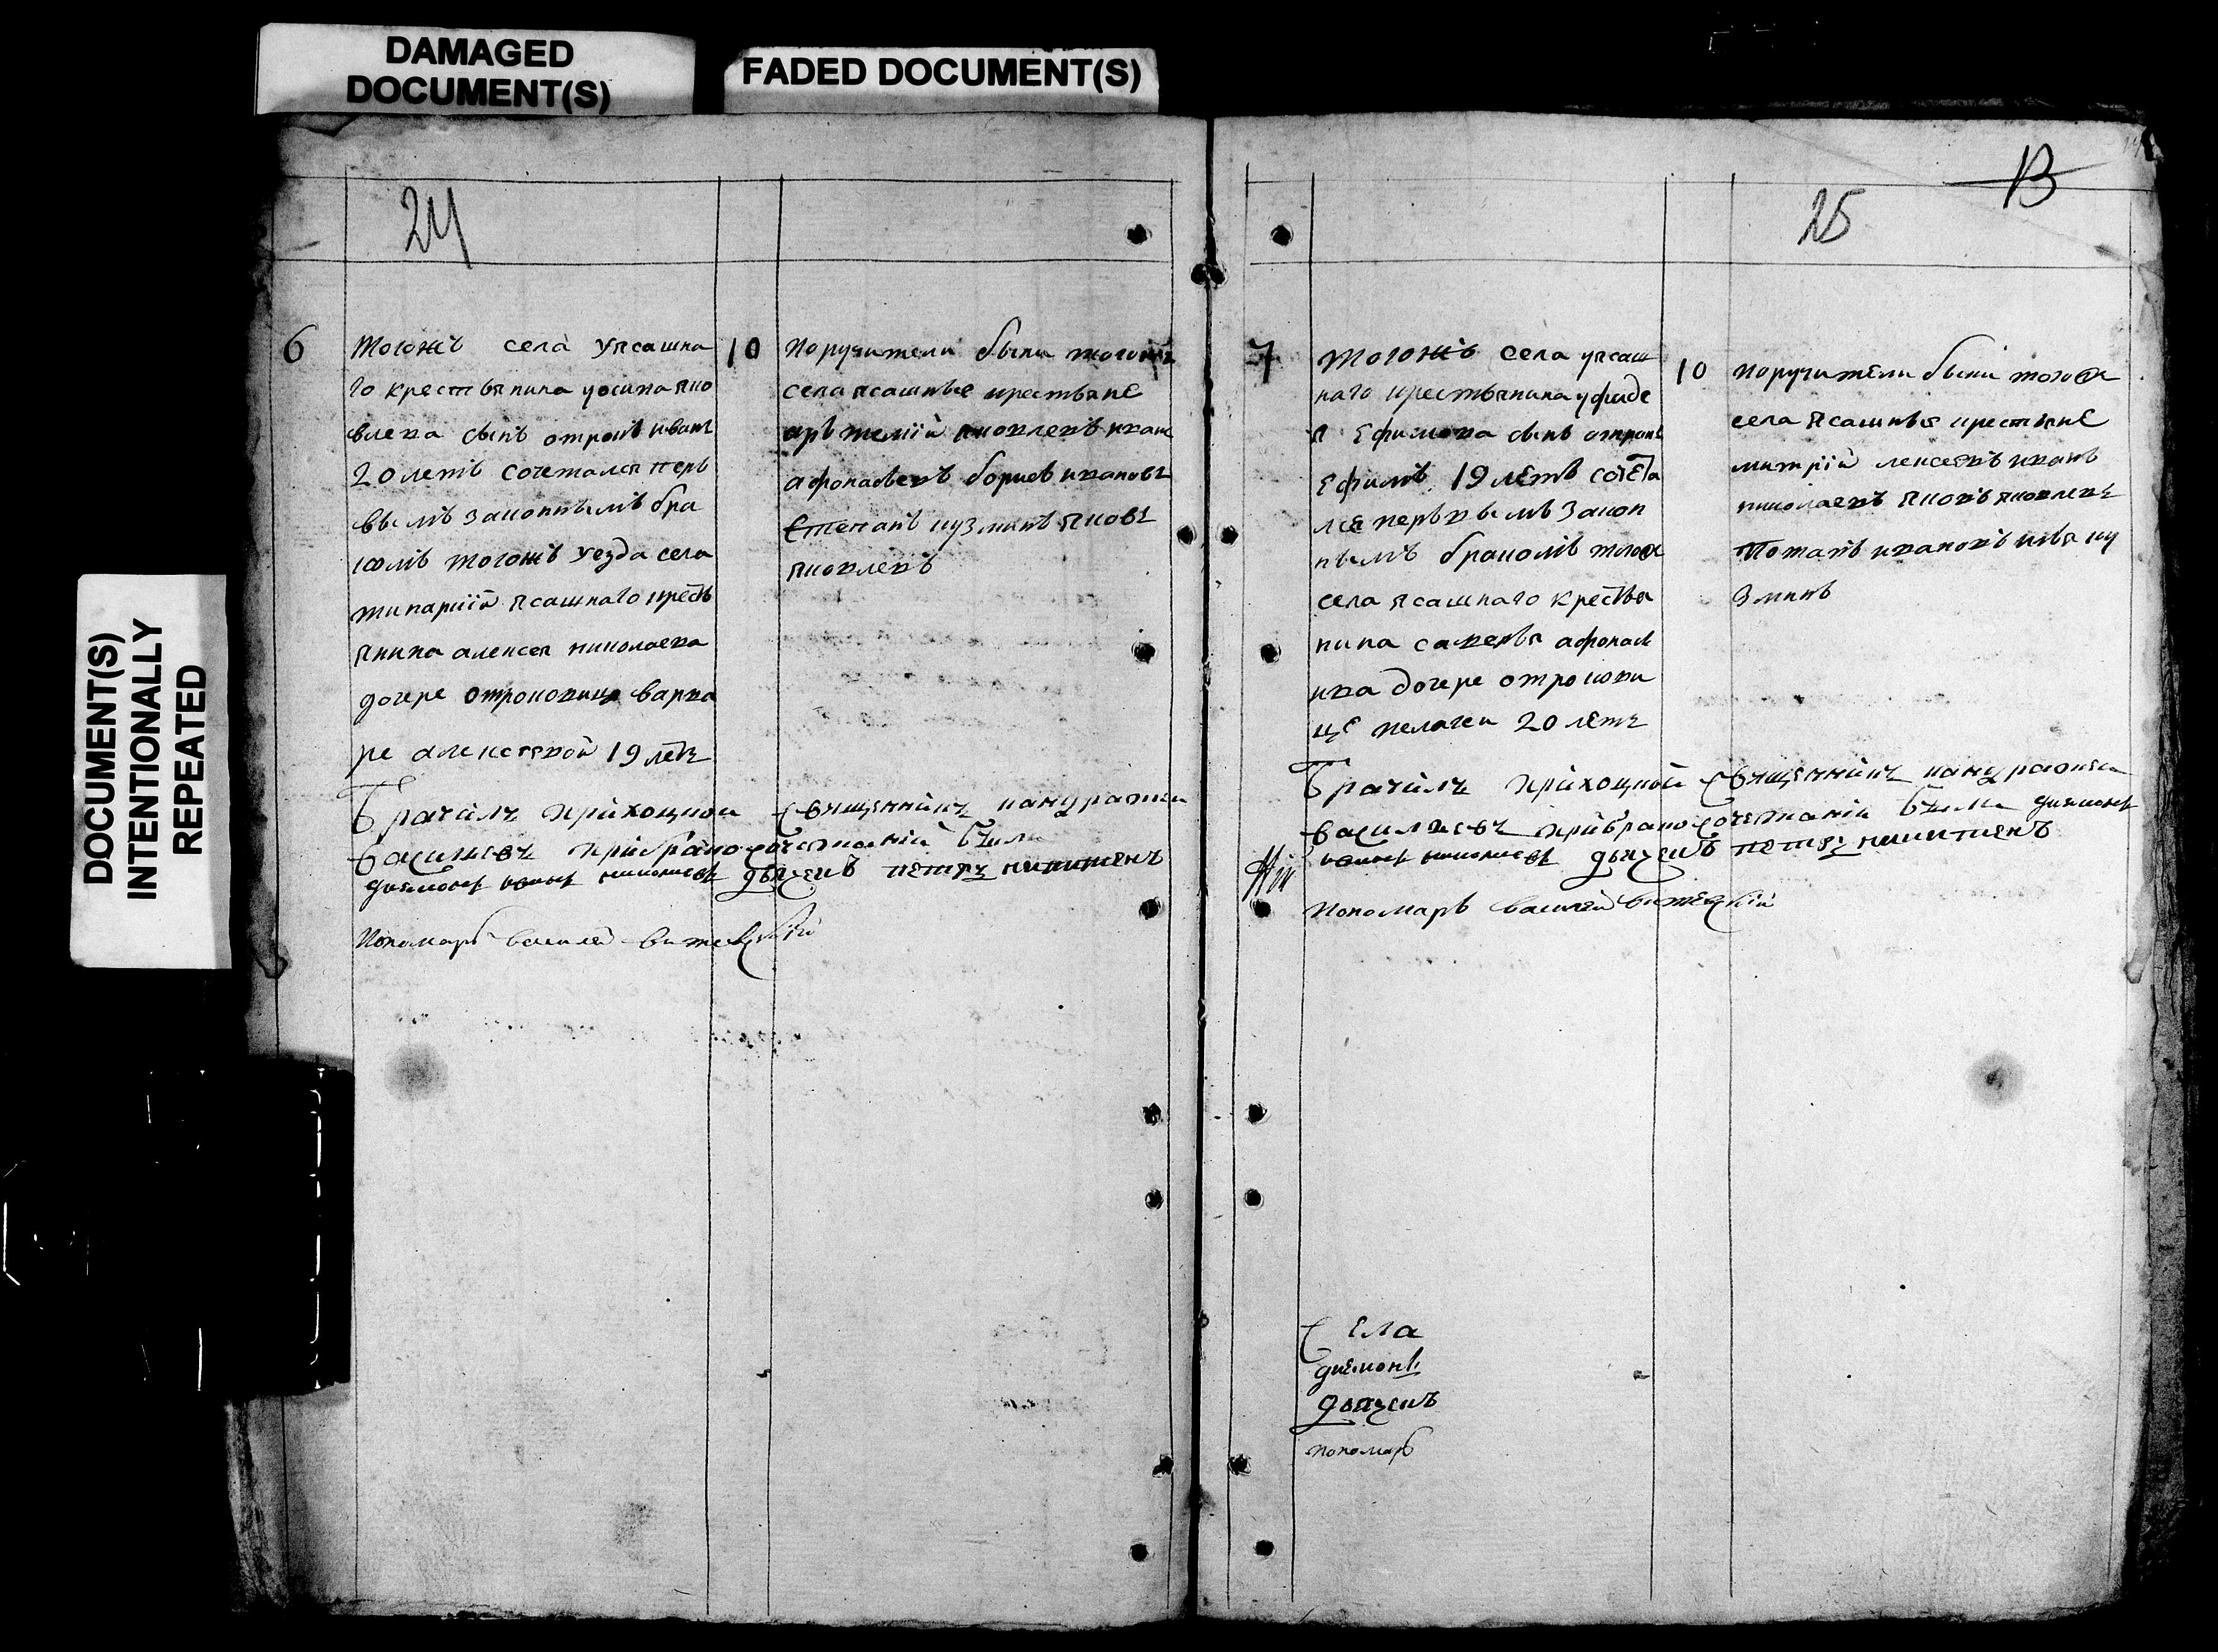 DAMAGED
DOCUMENT(S)
FADED DOCUMENT(S)
DOCUMENT(S)
INTENTIONALLY
REPEATED
24
6
тогожъ села уясашна
го крестьянина уосипа яко
влева сынъ отрокъ иванъ
20 летъ сочетался перъ
вымъ законнымъ бра
комъ тогожъ уезда села
ясашнаго крестъ
янина алексея николаева
дочере отроковице варва
ре алексеевой 19 летъ
10
поручители были тогожъ
села ясашные крестьяне
яковлевъ иванъ
афонасьевъ борисъ ивановъ
степанъ кузминъ яковъ
яковлевъ
Брачилъ приходной священникъ
василиевъ прибракосочетаний были
диаконъ иванъ дьячекъ петръ никитинъ
пономарь василей
13
25
7
тогожъ села уясаш
наго крестьянина уфаде
я ефимова сынъ отрокъ
ефимъ 19 летъ сочета
лся первымъ закон
нымъ бракомъ тогож
села ясашнаго крестья
нина савелья афонась
ива дочере отрокови
це пелагеи 20 летъ
10
поручители были тогож
села ясашныя крестьяне
митрий лексеевъ иванъ
николаевъ яковъ яковлевъ
потапъ ивановъ илья ку
зминъ
Брачилъ приходной священникъ
василиевъ прибракосочетании были диаконъ
дьячекъ петръ никитинъ
пономарь василей
села
диаконъ
дьячекъ
пономарь